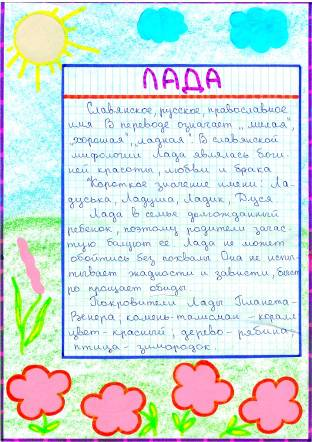 ЛАДА
Славянское, русское, православное
имя. В переводе означает „милая",
„хорошая", „ладная". В славянской
мифологии Лада являлась боги-
ней красоты, любви и брака
Короткое значение имени: Ла-
дуська, Ладуша, Ладик, Дуся
Лада в семье долгожданный
ребенок, поэтому родители зачас-
тую балуют ее. Лада не может
обойтись без похвалы. Она не испы-
тывает жадности и зависти, быст
ро прощает обиды.
Покровители Лады: Планета-
Венера; камень-талисман - коралл
цвет - красный; дерево - рябина,
птица - зимородок.